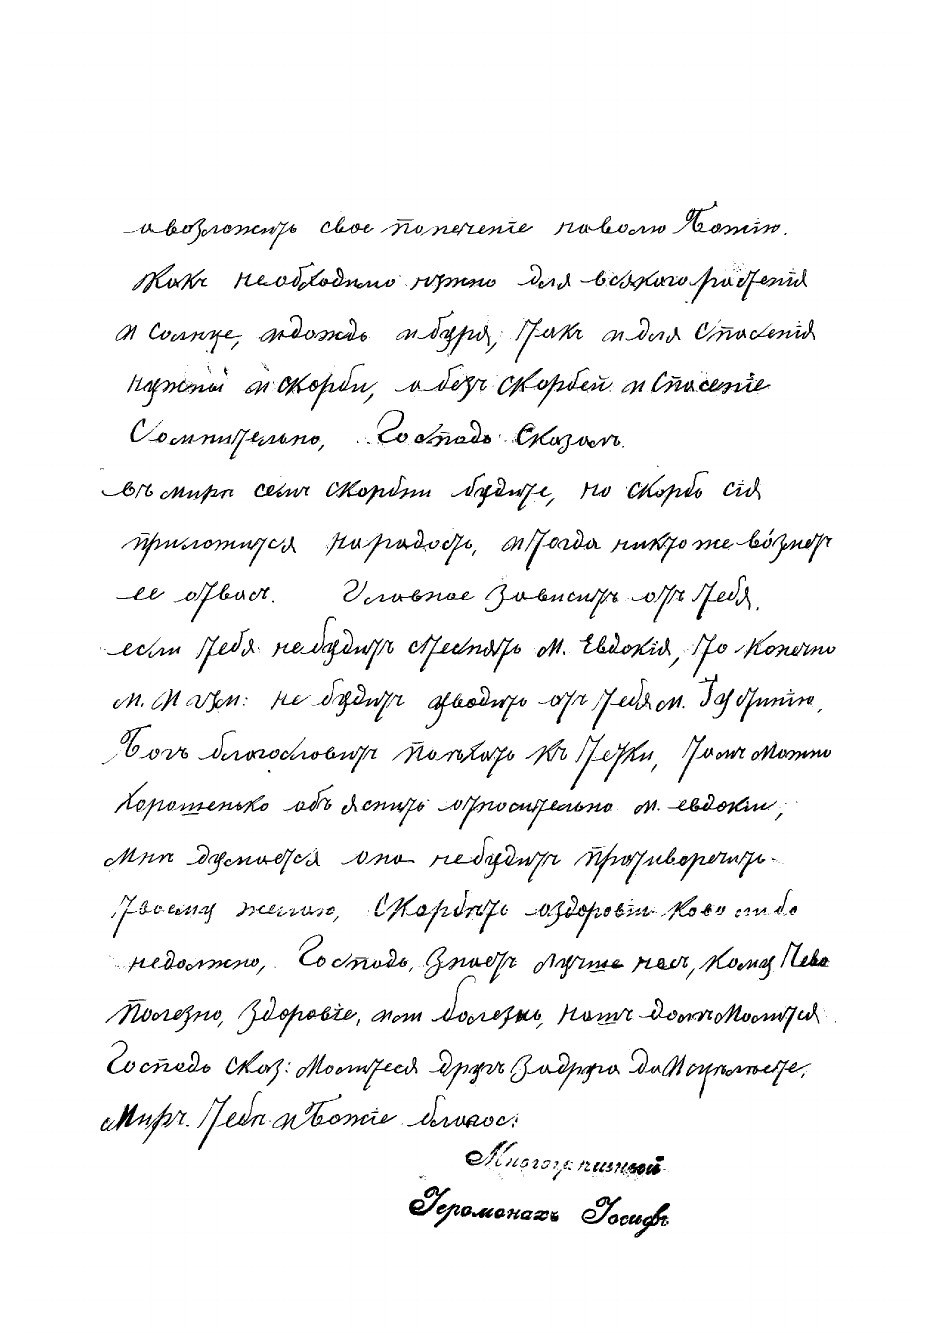 а возложить свое попечение на волю Божію.
Какъ необходимо нужно для всякаго растенія
и солнце, и дождь и буря, такъ и для спасенія
нужны и скорби, а безъ скорбей и спасеніе
сомнительно, Господь сказалъ.
въ мирѣ семъ скорбни будите, но скорбь сія
приложится на радость, и тогда никто же возметъ
ее отъ васъ. Главное зависитъ отъ тебя,
если тебя не будитъ стеснять м. Евдокія, то конечно
м. Игум: не будитъ уводить отъ тебя м. Іустинію,
Богъ благословитъ поѣхать къ Петки, тамъ можно
хорошенько объяснить относительно м. евдокіи,
мнѣ думается она не будитъ противоречить
твоему желаю, скорбѣть о здоровіи ково либо
недолжно, Господь знаетъ лучше насъ, кому чево
полезно, здоровіе, или болезнь, нашъ долгъ молится
Господь сказ: молитеся другъ за друга да исцѣлѣете,
Миръ тебѣ и Божіе благос:
Многогрѣшный
Іеромонахъ Іосифъ